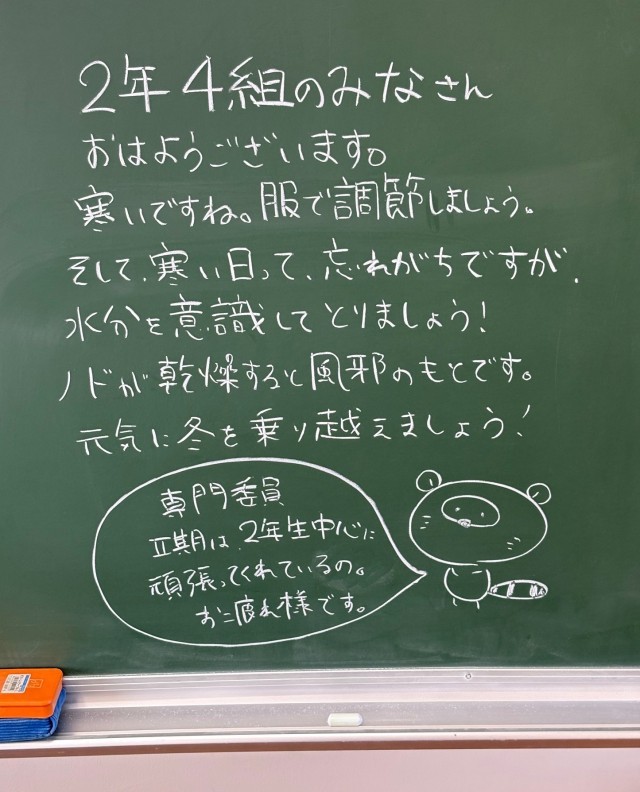 2年4組のみなさん
おはようございます。
寒いですね。服で調節しましょう。
そして、寒い日って、忘れがちですが、
水分を意識してとりましょう!
ノドが乾燥すると風邪のもとです。
元気に冬を乗り越えましょう!
専門委員
II期は、2年生中心に
頑張ってくれているの。
おつ疲れ様です。